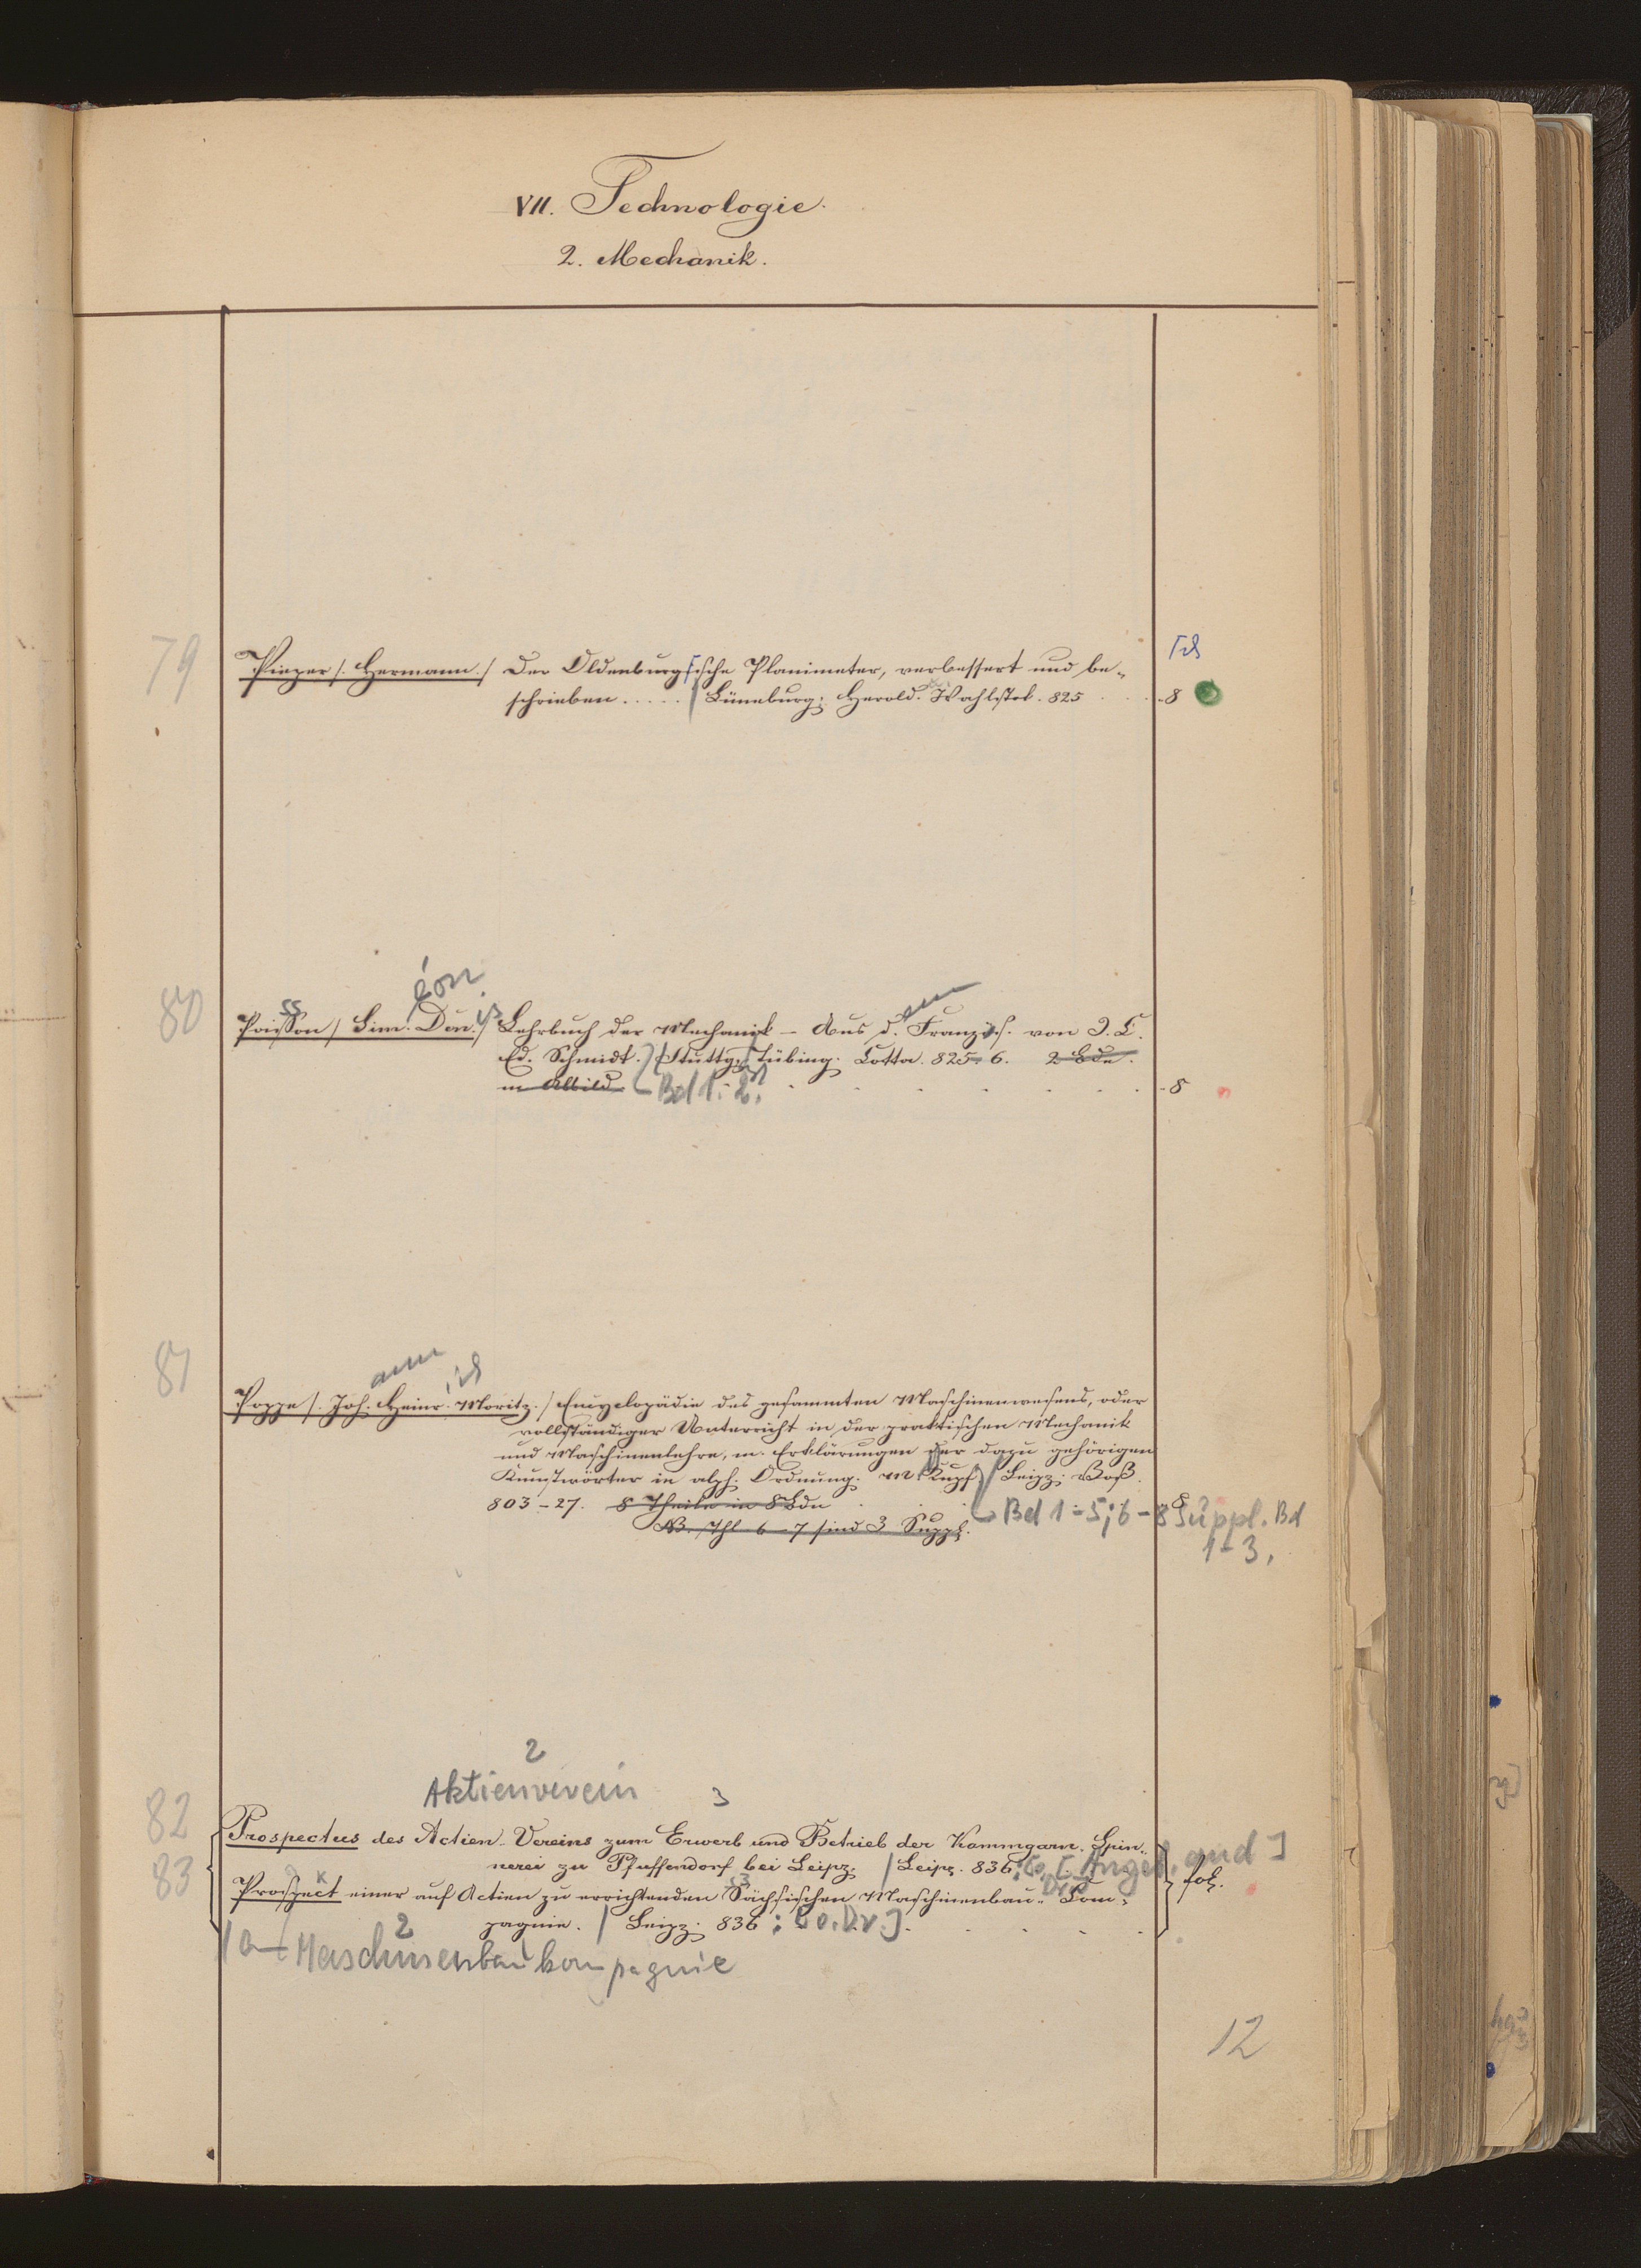 VII. Technologie.
2. Mechanik.
79
Pinzer /. Hermann./ Der Oldenburgische Planimeter, verbessert und be-
schrieben ..... / Lüneburg: Herold. Wahlstab. 825 8
éon
80
Poisson / Sim. Den. ys Lehrbuch der Mechanik - Aus d. em Französ. von J. C.
Ed. Schmidt. Stuttg. Tübing. Cotta. 825-6. 2 Bde.
m Abbild. Bd 1. 2. 8
ann ich
81
Poppe /. Joh. Heinr. Moritz./ Encyclopädie des gesammten Maschinenwesens, oder
vollständiger Unterricht in der praktischen Mechanik
und Maschinenlehre, m. Erklärungen der dazu gehörigen
Kunstwörter in alph. Ordnung. m Kupf / Leipz. Voß.
803-27. 8 Theile in 8 Bdn 8
NB. Thl 6-7 sind 3 Suppl. Bd 1-5; 6-8 Suppl. Bd
1-3.
2
Aktienverein 3
82
Prospectus des Actien-Vereins zum Erwerb und Betrieb der Kammgarn-Spin-
nerei zu Pfaffendorf bei Leipz. / Leipz. 836 fol.
83
Prospect einer auf Actien zu errichtenden Sächsischen Maschinenbau-Com-
pagnie. / Leipz. 836 : [o. Dr.]
2
Maschinenbaukompagnie
12